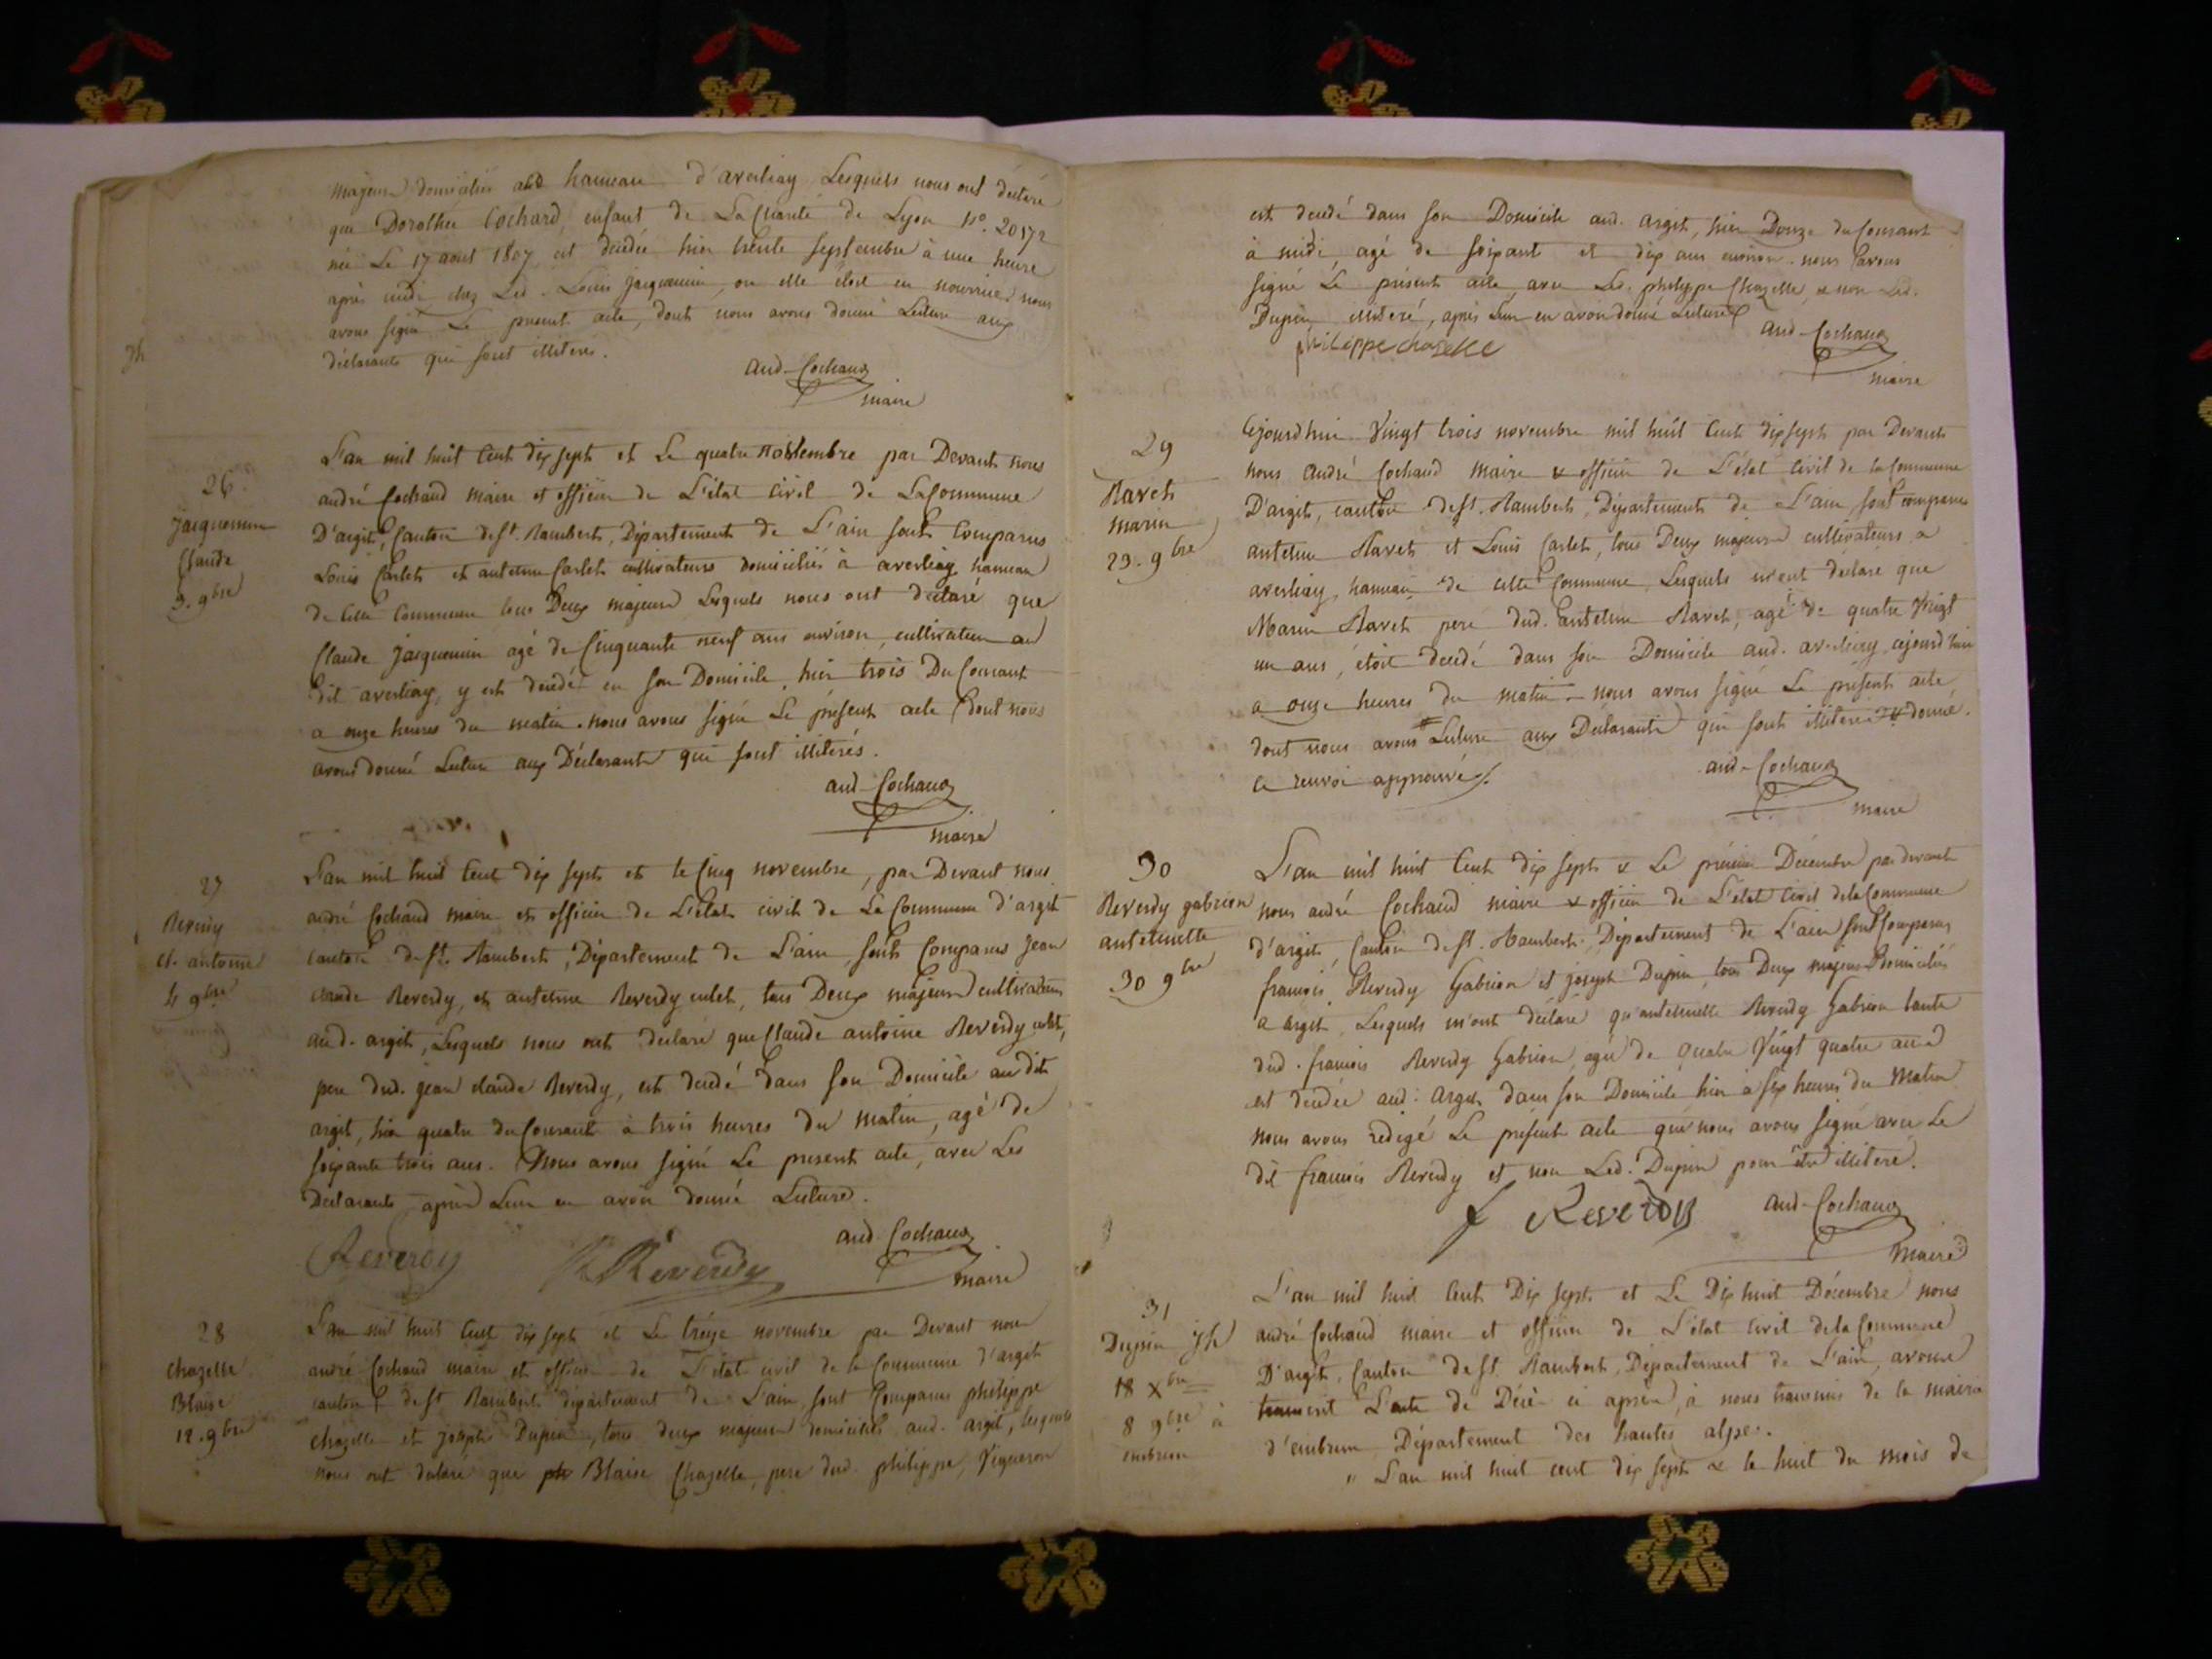 majeurs domiciliés aud hameau d'averliay Lesquels nous ont déclaré
que Dorothée Cochard, enfant de La Charité de Lyon N°. 20172
née Le 17 aout 1807 est decédée hier trente septembre à une heure
après midi chez Led. Louis jacquemin, ou elle étoit en nourrice, nous
avons signé Le present acte, dont nous avons donné Lecture aux
déclarants qui sont illiterés.
And-Cochaud
maire
26
Jacquemin
Claude
3. 9bre
L'an mil huit Cent dix sept et Le quatre novembre par Devant nous
andré Cochaud maire et officier de L'état Civil de La Commune
D'argit, Canton de St. Rambert, Département de L'ain sont Comparus
Louis Carlet et antelme Carlet cultivateurs domiciliés à averliay hameau
de Cette Commune tous Deux majeurs Lesquels nous ont déclaré que
Claude Jacquemin agé de Cinquante neuf ans environ, cultivateur au
dit averliay, y est decédé en son Domicile, hier trois Du Courant
a onze heures du matin. nous avons signé Le présent acte dont nous
avons donné Lecture aux Déclarants qui sont illiterés.
and-Cochaud
maire
27
Reverdy
Cl. antoine
4 9bre
L'an mil huit Cent dix sept et le Cinq novembre, par Devant nous
andré Cochaud maire et officier de L'état civil de La Commune d'argit
canton de St. Rambert, Département de L'ain, sont Comparus Jean
claude Reverdy, et antelme Reverdy culet, tous Deux majeurs cultivateurs
aud. argit, Lesquels nous ont déclaré que Claude antoine Reverdy culet,
pere dud. jean claude Reverdy, est decédé dans son Domicile au dit
argit, hier quatre du Courant à trois heures du matin, agé de
soixante trois ans. Nous avons signé Le present acte, avec Les
Déclarants après Leur en avoir donné Lecture.
Reverdy
Reverdy
and Cochaud
maire
28
Chazelle
Blaise
12. 9bre
L'an mil huit Cent dix sept et Le treize novembre par Devant nous
andré Cochaud maire et officier de L'état civil de la Commune d'argit
canton de St Rambert département de L'ain, sont Comparus philippe
Chazelle et joseph Dupin, tous deux majeurs domiciliés aud. argit, lesquels
nous ont déclaré que Blaise Chazelle, pere dud. philippe, Vigneron
est decédé dans son Domicile aud. argit, hier Douze du Courant
à midi, agé de soixante et dix ans environ. nous avons
signé Le présent acte, avec Led. philippe Chazelle, & non Led.
Dupin illiteré, après Leur en avoir donné Lecture
philippe chaselle
and-Cochaud
maire
29
Ravet
Marin
23. 9bre
Cejourdhui Vingt trois novembre mil huit Cent dix sept par Devant
nous André Cochaud Maire & officier de L'état Civil de la Commune
D'argit, canton de St. Rambert, Département de L'ain sont comparus
antelme Ravet et Louis Carlet, tous Deux majeurs cultivateurs a
averliay, hameau de cette Commune, Lesquels m'ont déclaré que
Marin Ravet pere dud. antelme Ravet, agé de quatre Vingt
un ans, étoit decédé dans son Domicile aud. averliay, cejourd'hui
a onze heures du matin. nous avons signé Le présent acte,
dont nous avons Lecture aux Déclarants qui sont illiterés donné.
Ce renvoi approuvé.
and-Cochaud
maire
30
Reverdy gabrion
antelmette
30 9bre
L'an mil huit Cent dix sept & Le premier Décembre par devant
nous andré Cochaud maire & officier de L'état Civil de la Commune
d'argit, Canton de St. Rambert, Département de L'ain sont Comparus
françois Reverdy Gabrion et joseph Dupin, tous Deux majeurs Domiciliés
a argit, Lesquels m'ont déclaré qu'antelmette Reverdy Gabrion tante
dud. françois Reverdy Gabrion, agée de quatre Vingt quatre ans
est decédée aud. argit dans son Domicile hier à six heures du matin
nous avons redigé Le présent acte que nous avons signé avec Le
dit françois Reverdy et non Led. Dupin pour être illiteré.
f Reverdy
and-Cochaud
maire
31
Dupin Jh
18 Xbre
8 9bre à
embrun
L'an mil huit Cent Dix sept et Le Dix huit Décembre nous
andré Cochaud maire et officier de L'état Civil de la Commune
D'argit, Canton de St Rambert, Département de L'ain, avons
transcrit L'acte de Décès ci après, à nous transmis de la mairie
d'embrun Département des hautes alpes.
" L'an mil huit cent dix sept & le huit du mois de